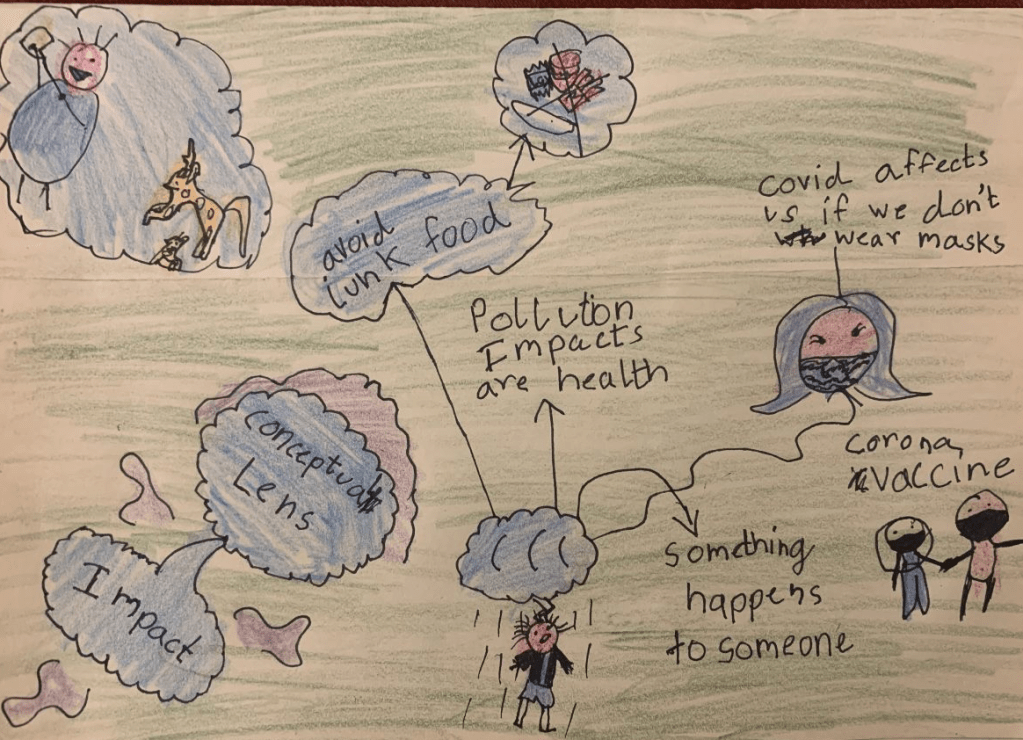 avoid
junk food
Covid affects
us if we don't
wear masks
Pollution
Impacts
are health
conceptual
Lens
Impact
Corona
vaccine
something
happens
to someone